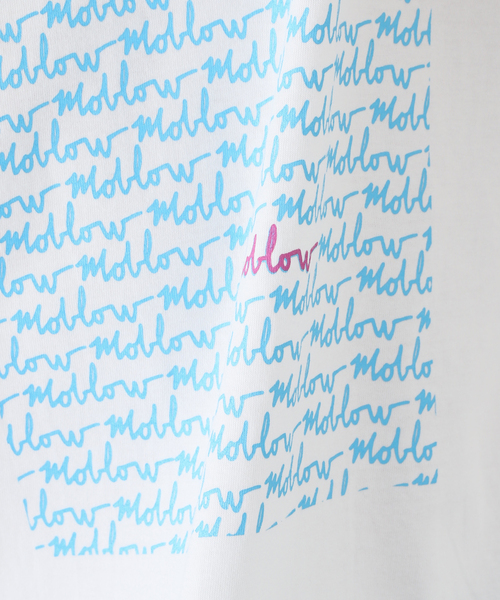 Moblow Moblow Moblow
Moblow Moblow Moblow Moblow
Moblow Moblow Moblow
Moblow Moblow Moblow Moblow
Moblow Moblow Moblow
Moblow Moblow Moblow
Moblow Moblow Moblow
Moblow Moblow Moblow
Moblow Moblow Moblow
Moblow Moblow Moblow
Moblow Moblow Moblow
Moblow Moblow Moblow
Moblow Moblow Moblow
Moblow Moblow